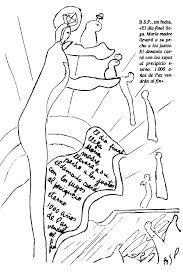 B.S.P., sin fecha.
«El día final lle-
ga. María madre
llevará a su pe-
cho a los justos.
El demonio cae-
rá con los suyos
al precipicio e-
terno. 1.000 a-
ños de Paz ven-
drán al fin».
El día
final
llega
María
madre
llevará a su
pecho
los justos
El demonio caerá
con los suyos
al precipicio
eterno
1000 años
de Paz
vendrán
al fin
BSP